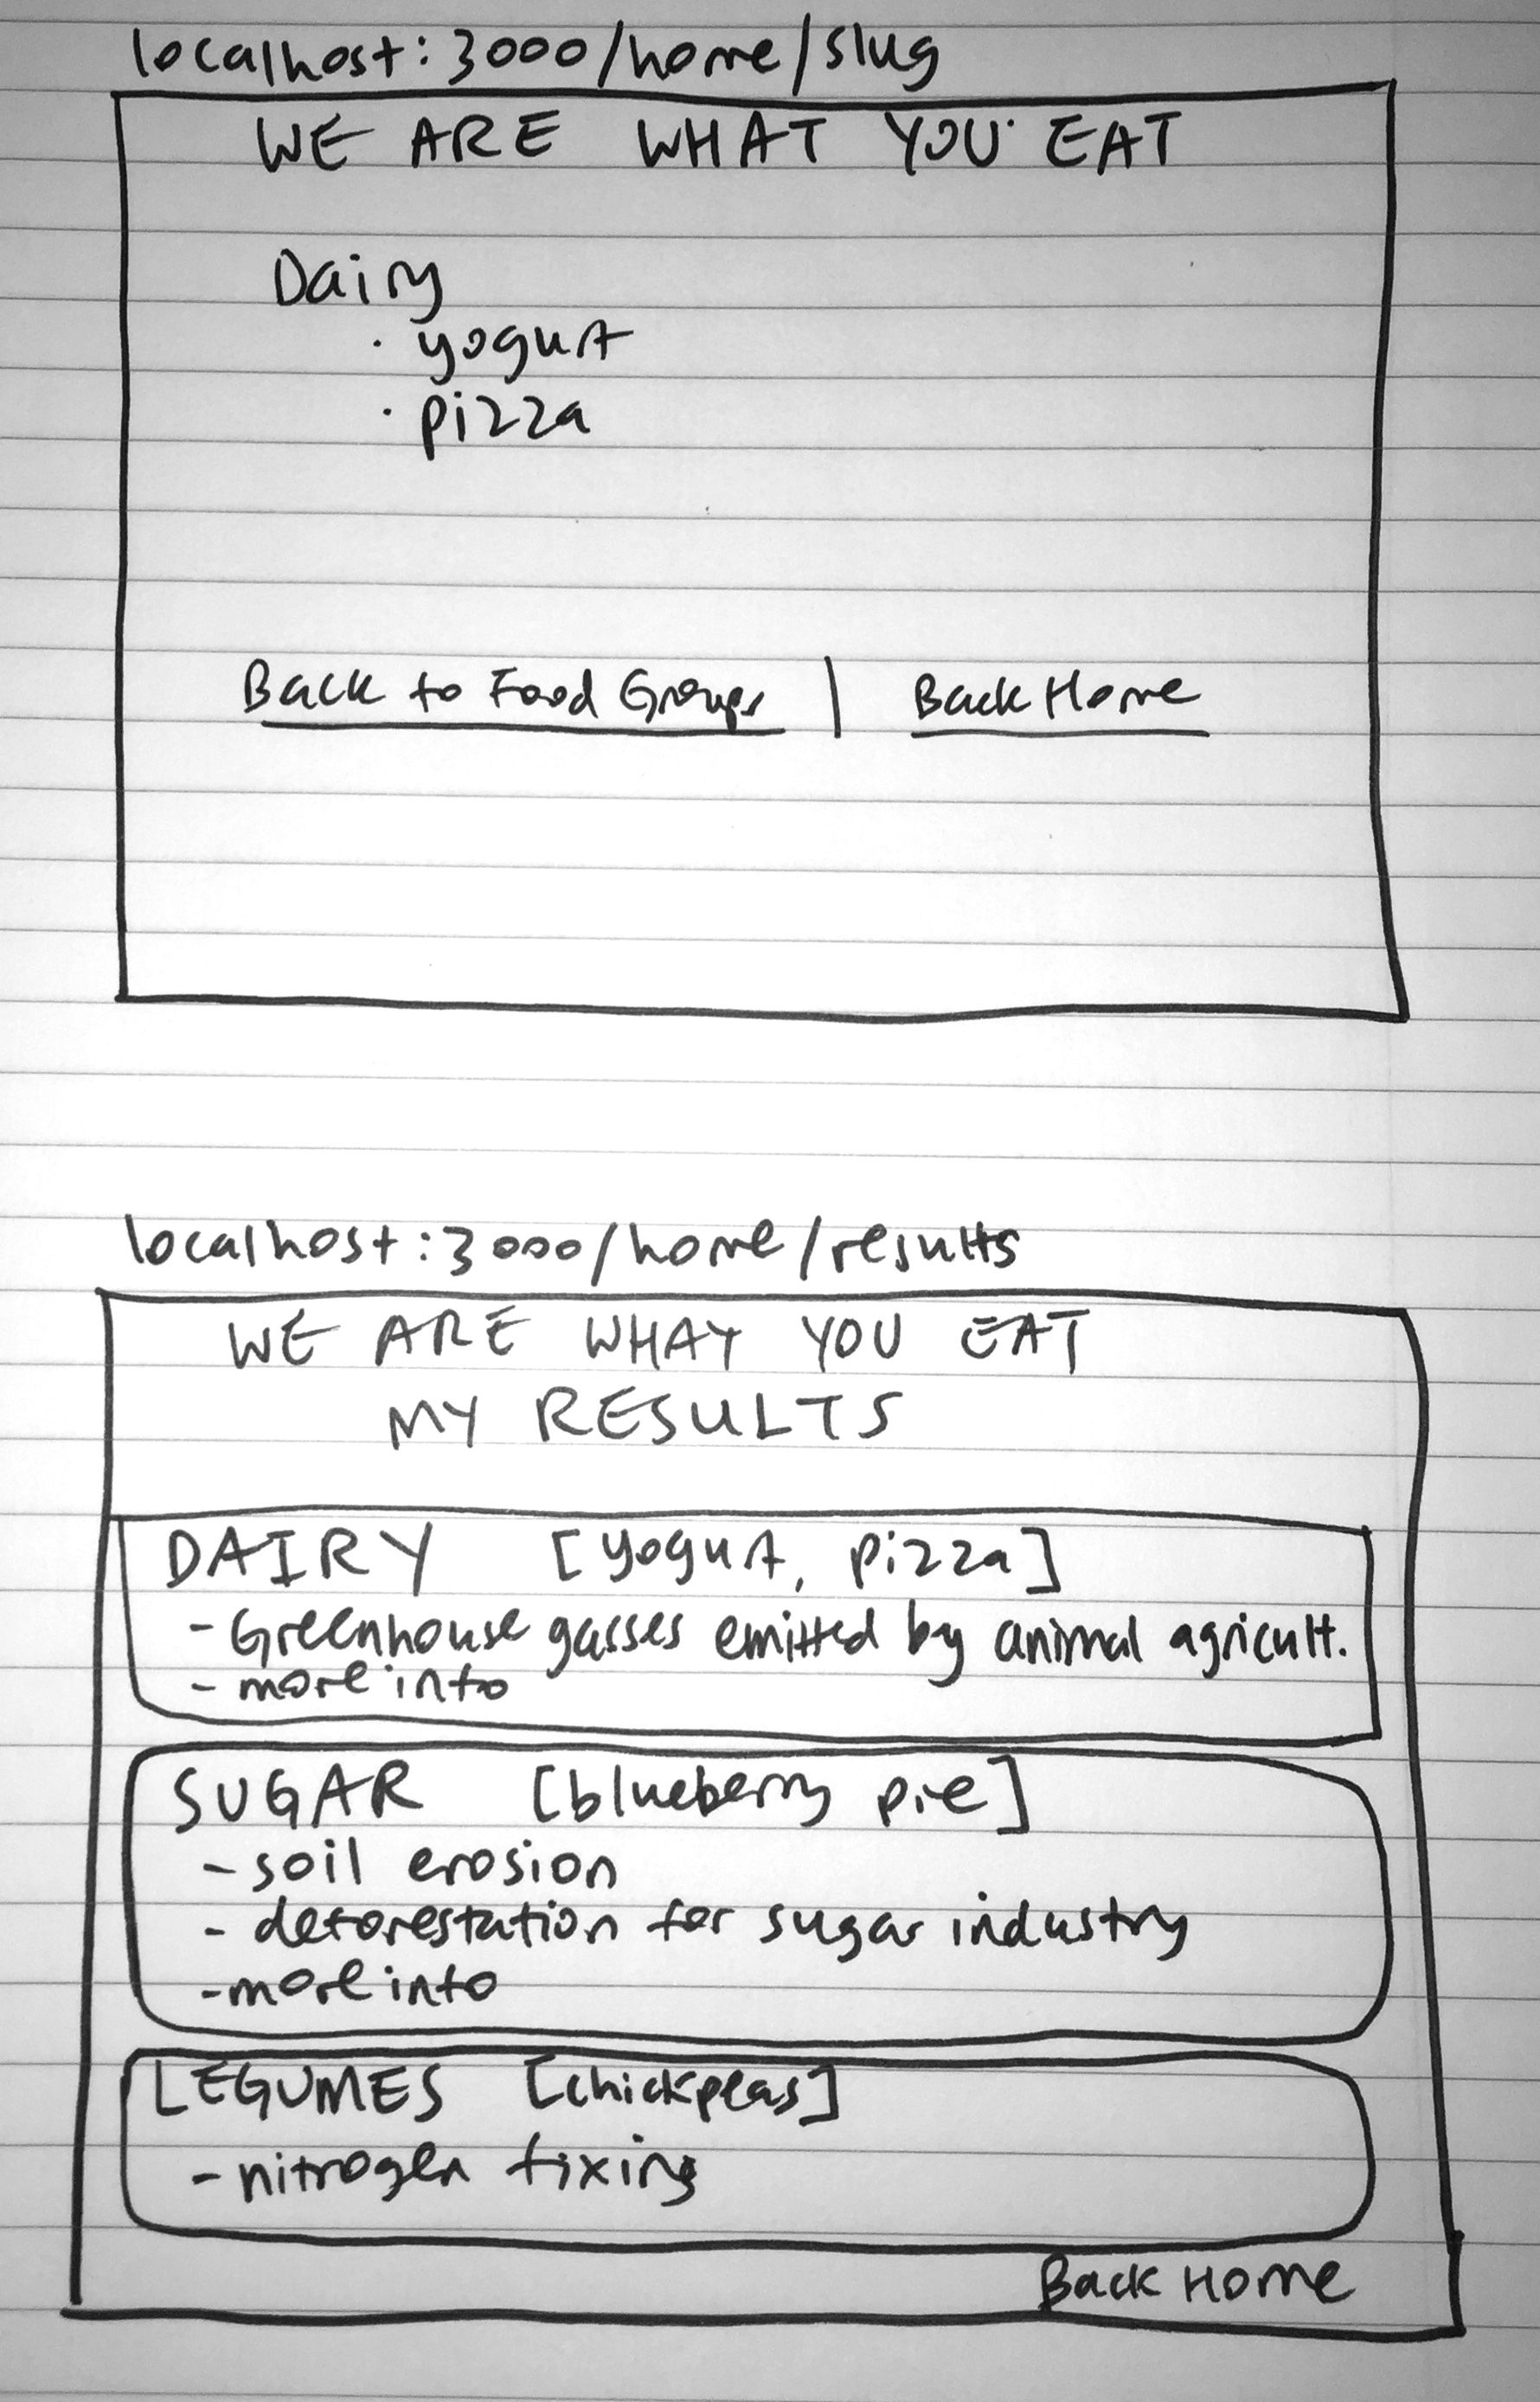 localhost:3000/home/slug
WE ARE WHAT YOU EAT
Dairy
· yogurt
· pizza
Back to Food Groups | Back Home
localhost:3000/home/results
WE ARE WHAT YOU EAT
MY RESULTS
DAIRY [yogurt, pizza]
- Greenhouse gasses emitted by animal agricult.
- more info
SUGAR [blueberry pie]
- soil erosion
- deforestation for sugar industry
- more info
LEGUMES [chickpeas]
- nitrogen fixing
Back Home